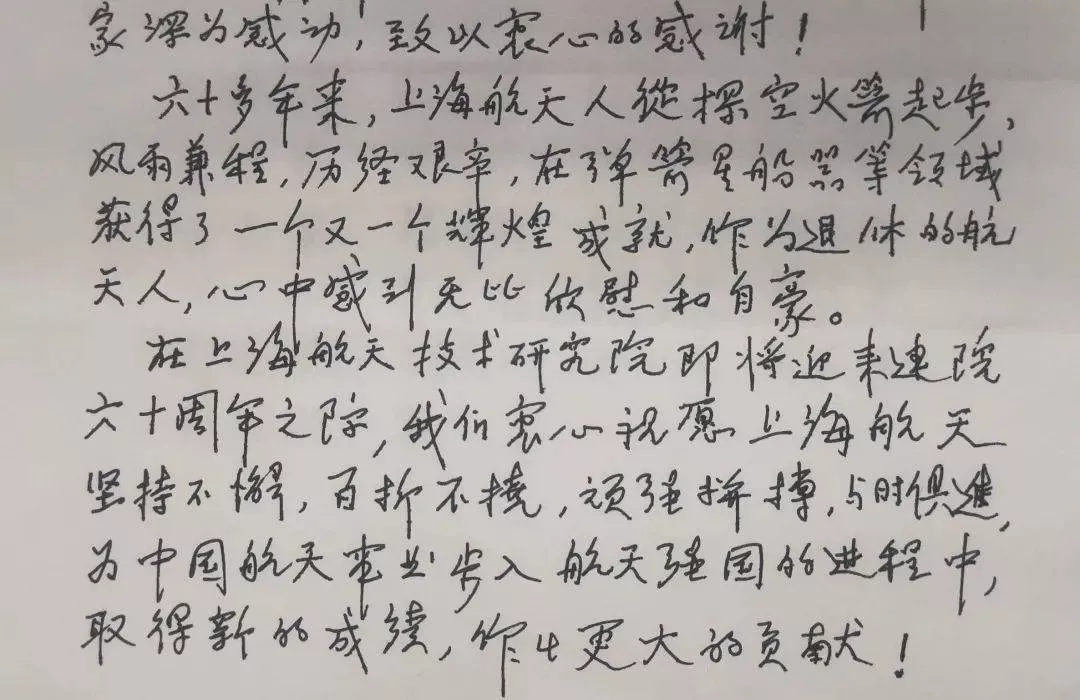 家深为感动，致以衷心的感谢！
六十多年来，上海航天人從探空火箭起步，
风雨兼程，历经艰辛，在弹箭星船器等领域
获得了一个又一个辉煌成就，作为退休的航
天人，心中感到无比欣慰和自豪。
在上海航天技术研究院即将迎来建院
六十周年之际，我们衷心祝愿上海航天
坚持不懈，百折不挠，顽强拼搏，与时俱進，
为中国航天事业步入航天强国的进程中，
取得新的成绩，作出更大的贡献！